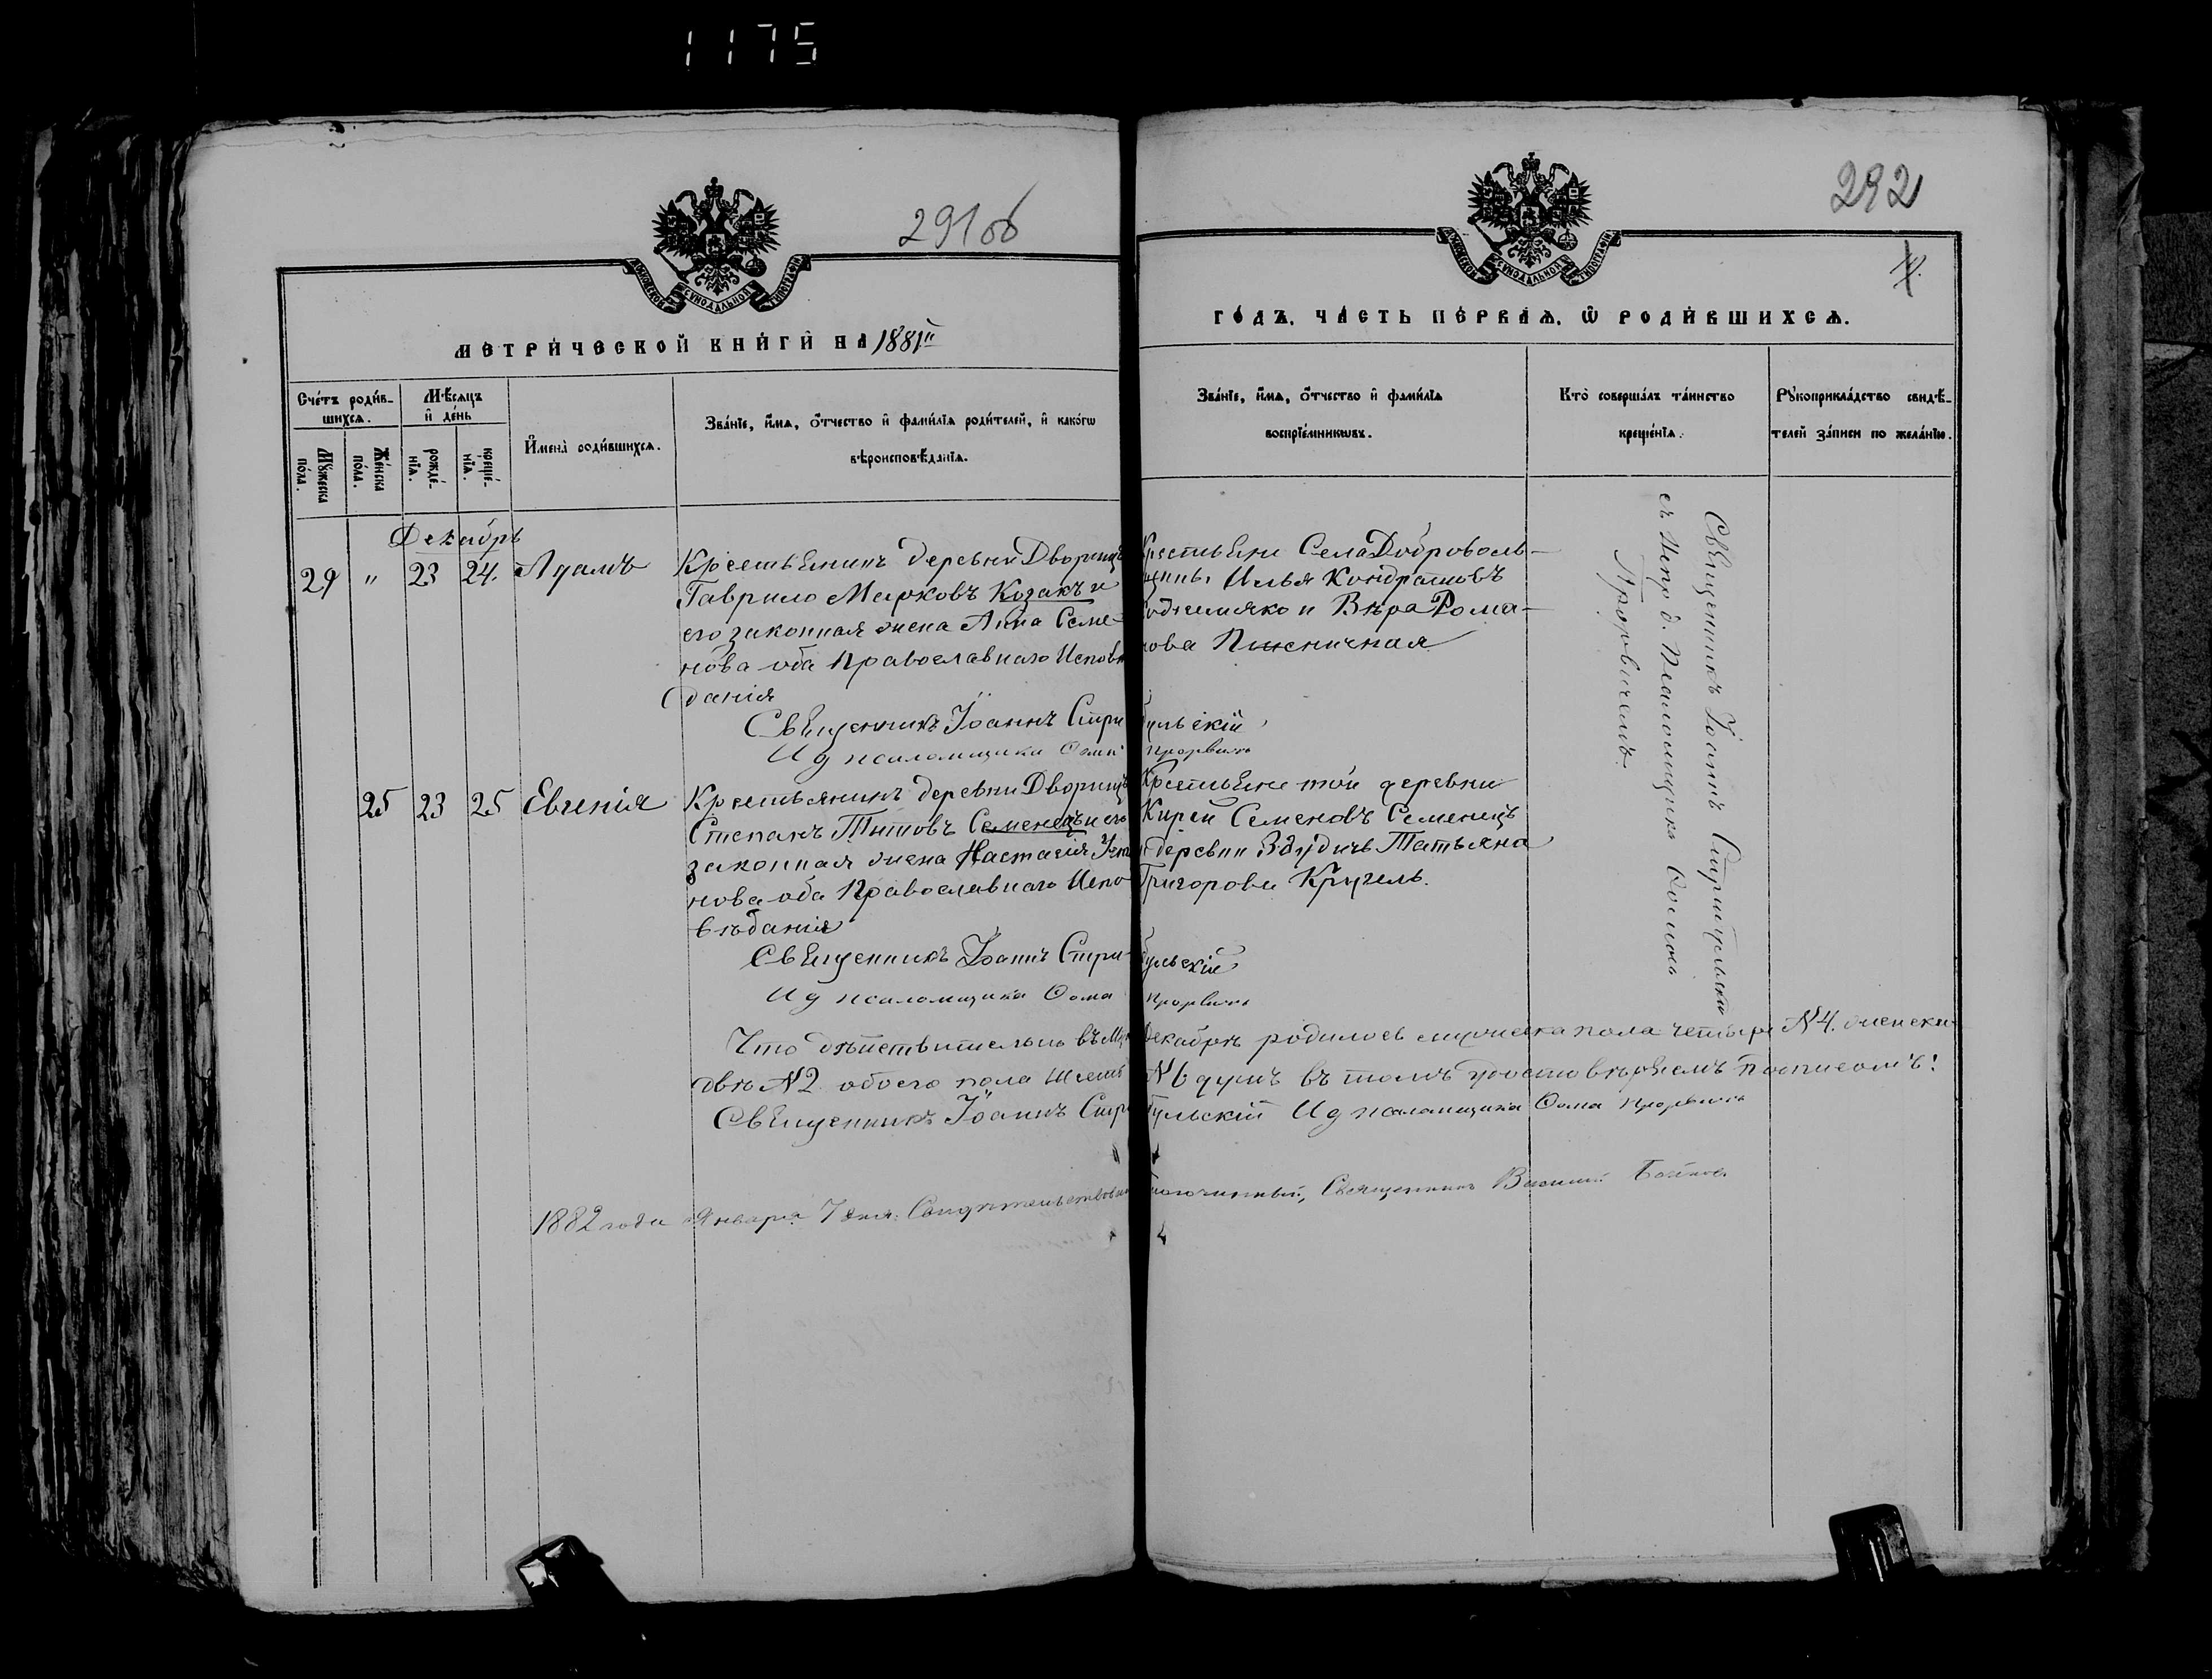 1175
291об
292
МОСКОВСКОЙ СѴНОДАЛЬНОЙ ТИПОГРАФІИ
МОСКОВСКОЙ СѴНОДАЛЬНОЙ ТИПОГРАФІИ
МЕТРИ́ЧЕСКОЙ КНИ́ГИ НА 1881й
ГО́ДЪ, ЧА́СТЬ ПЕ́РВАѦ, Ѡ҆ РОДИ́ВШИХСѦ.
Сче́тъ роди́в-
шихсѧ.
Мꙋ́жеска по́ла.
Же́нска по́ла.
Мѣ́сѧцъ
и҆ де́нь
рожде́-
нїѧ.
креще́-
нїѧ.
И҆мена̀ роди́вшихсѧ.
Зва́нїе, и҆́мѧ, ѻ҆́тчество и҆ фами́лїѧ роди́телей, и҆ како́гѡ
вѣроисповѣ́данїѧ.
Зва́нїе, и҆́мѧ, ѻ҆́тчество и҆ фами́лїѧ
воспрїе́мникѡвъ.
Кто̀ соверша́лъ та́инство
креще́нїѧ.
Рꙋкоприкла́дство свидѣ́-
телей за́писи по жела́нїю.
Декабрь
29 " 23 24. Адамъ
Крестьянинъ деревни Дворищъ
Гаврило Марковъ Козакъ и
его законная жена Анна Семе-
нова оба Православнаго Исповѣ
данія
Крестьяне Села Доброволь-
щины Илья Кондратовъ
и Вѣра Рома-
нова Пшеничная
Священникъ Іоаннъ Стрибульскій
И д псаломщика Ѳома Прорвичъ
25 23 25 Евгенія
Крестьянинъ деревни Дворищъ
Степанъ Титовъ Семенецъ и его
законная жена Настасія
нова оба Православнаго Испо
вѣданія
Крестьяне той деревни
Кирей Семеновъ Семенецъ
и деревни Здудичъ Татьяна
Григорова Кругель.
Священникъ Іоаннъ Стрибульскій
И д псаломщика Ѳома Прорвичъ
Священникъ Іоаннъ Стрибульскій
съ д. Псаломщика Ѳомою
Прорвичемъ
Что дѣйствительно въ Декабрѣ родилось мужеска пола четыре №4. женска
двѣ №2 обоего пола шесть №6 душъ въ томъ удостовѣряемъ подписомъ:
Священникъ Іоаннъ Стрибульскій И д псаломщика Ѳома Прорвичъ
1882 года Января 7 дня. Свидѣтельствовалъ Благочинный, Священникъ Василій